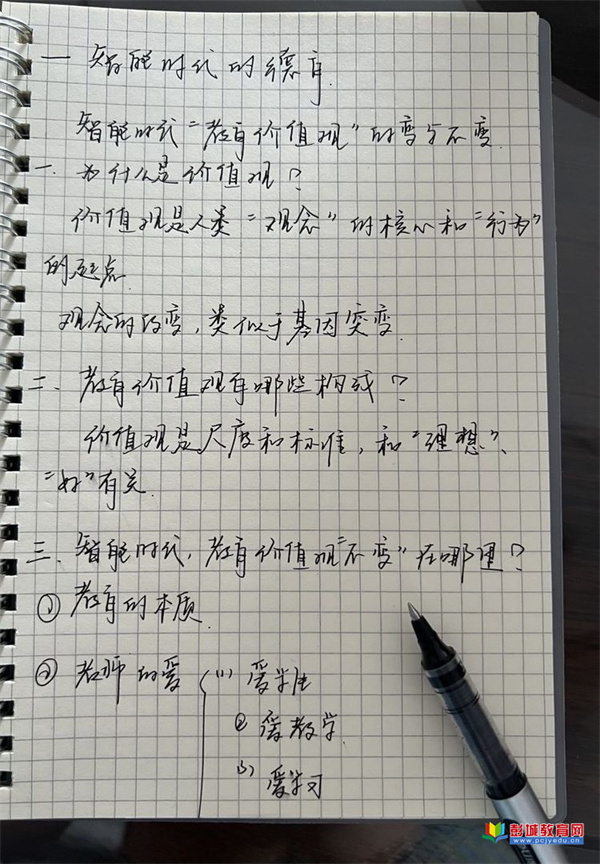 一 智能时代的德育
智能时代"教育价值观"的变与不变
一、为什么是价值观?
价值观是人类"观念"的核心和"行为"
的起点
观念的改变,类似于基因突变
二、教育价值观有哪些构成?
价值观是尺度和标准,和"理想"、
"好"有关
三、智能时代,教育价值观"不变"在哪里?
①教育的本质
②老师的爱 (1) 爱学生
② 爱教学
(3) 爱学习
彭城教育网
www.pcjyedu.cn